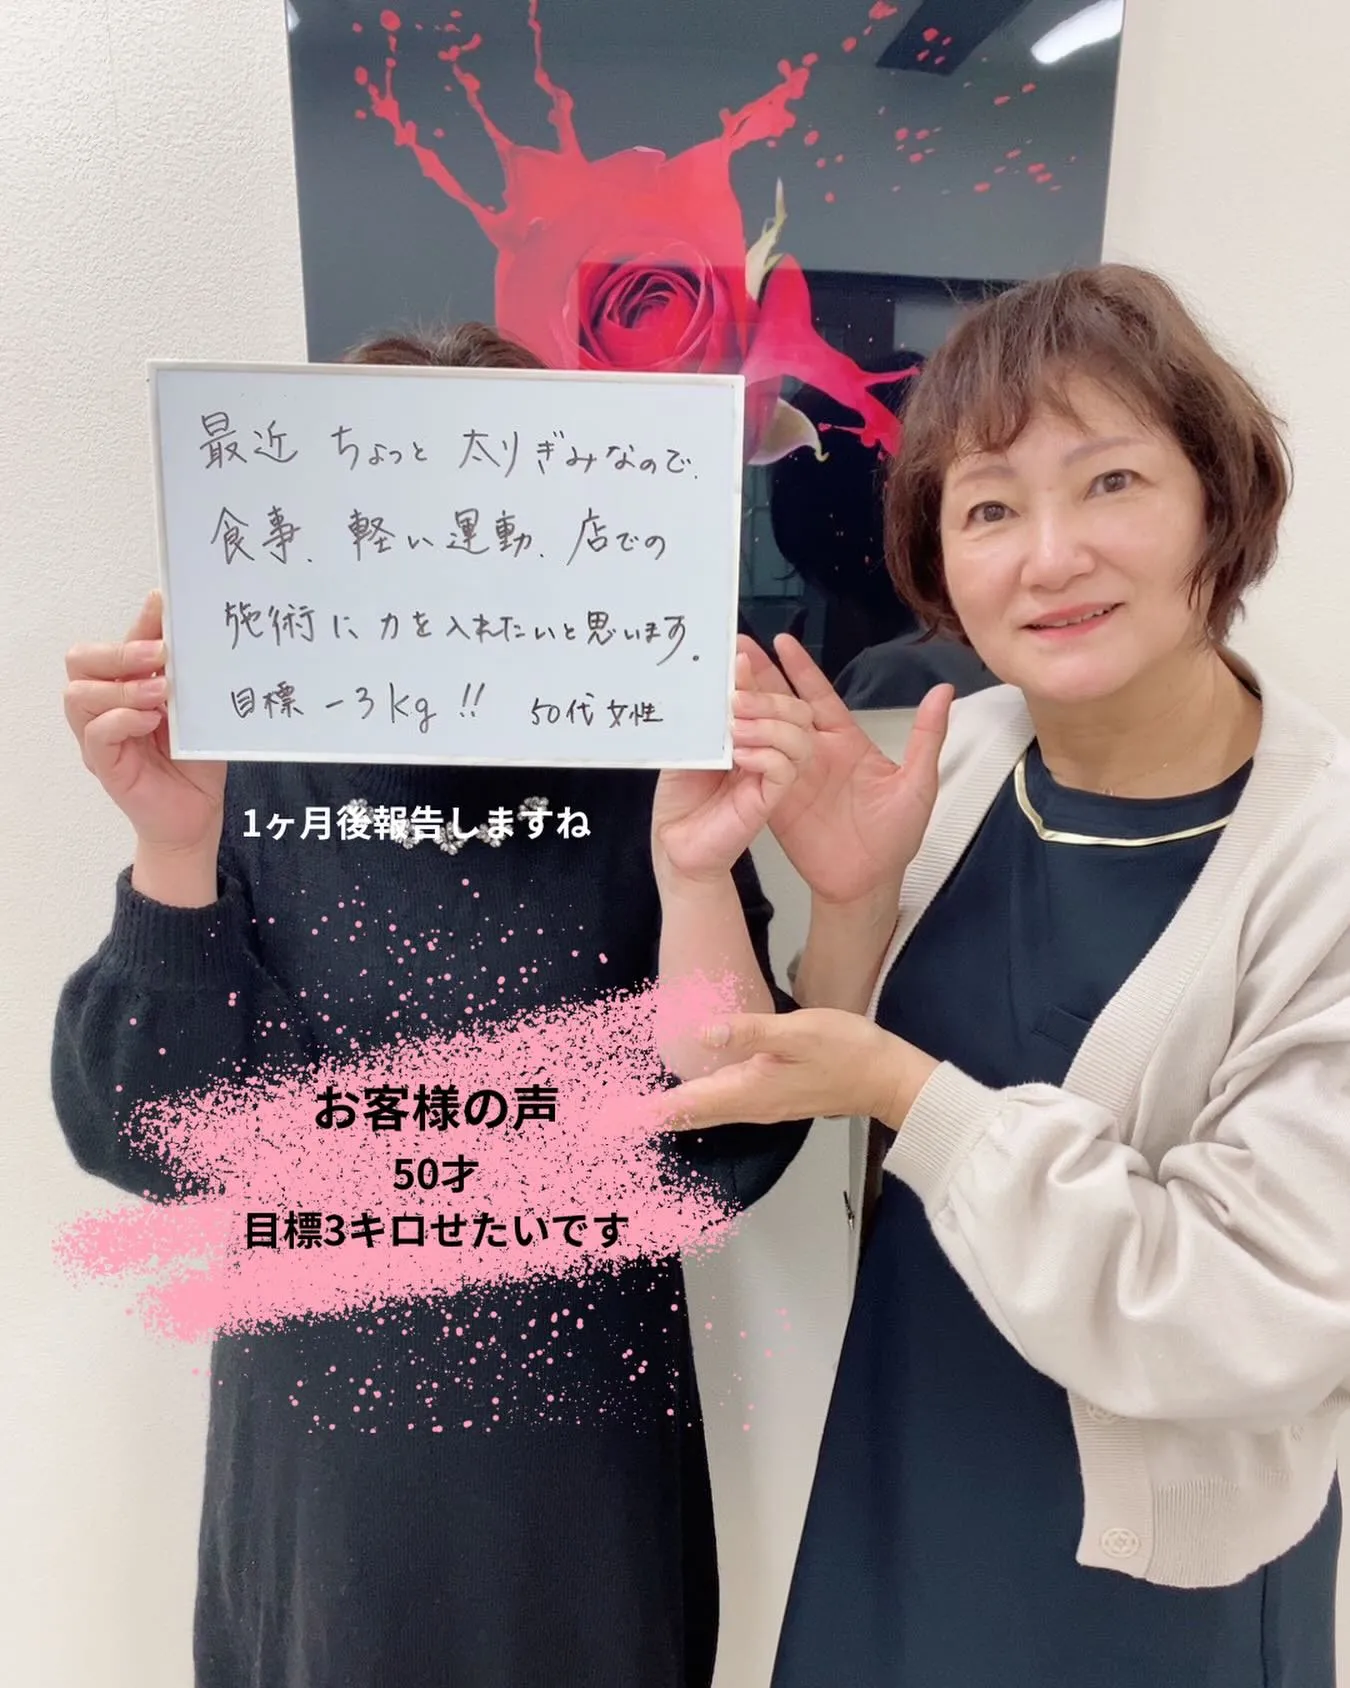 最近 ちょっと 太りぎみなので、
食事、軽い運動、店での
施術に力を入れたいと思います。
目標 -3kg!! 50代女性
1ヶ月後報告しますね
お客様の声
50才
目標3キロせたいです